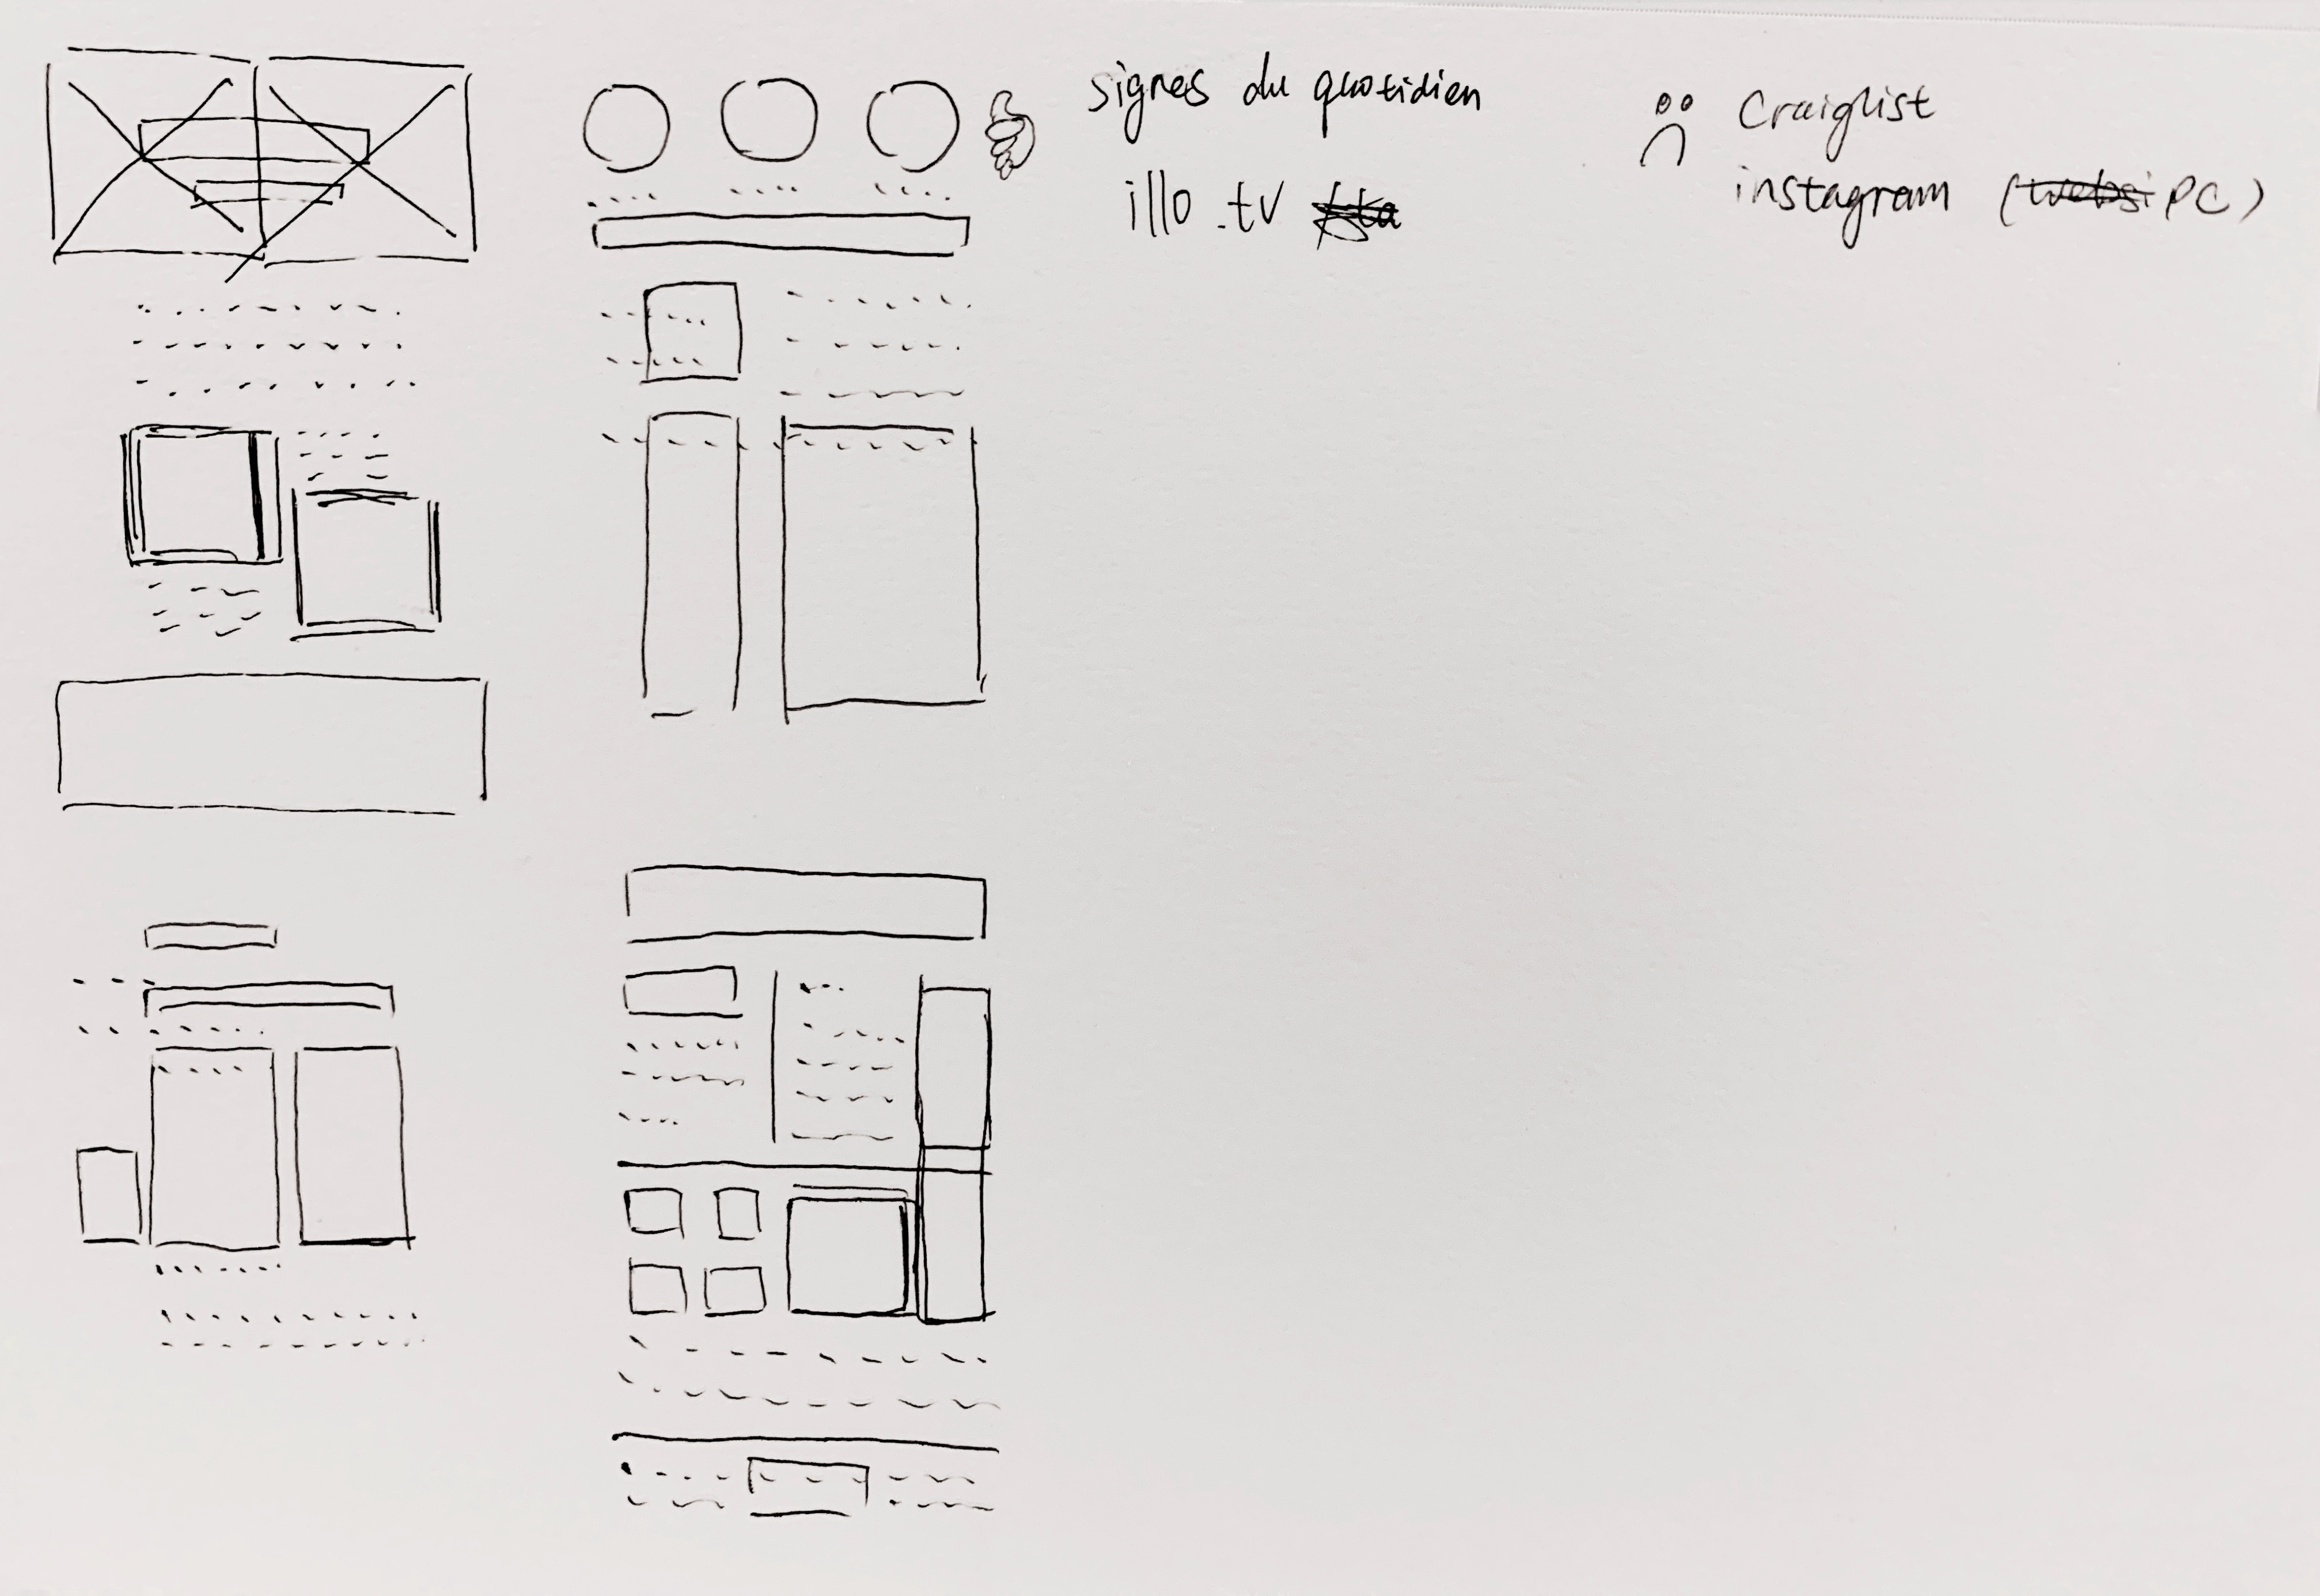 signes du quotidien
illo.tv
Craiglist
instagram (websi PC)